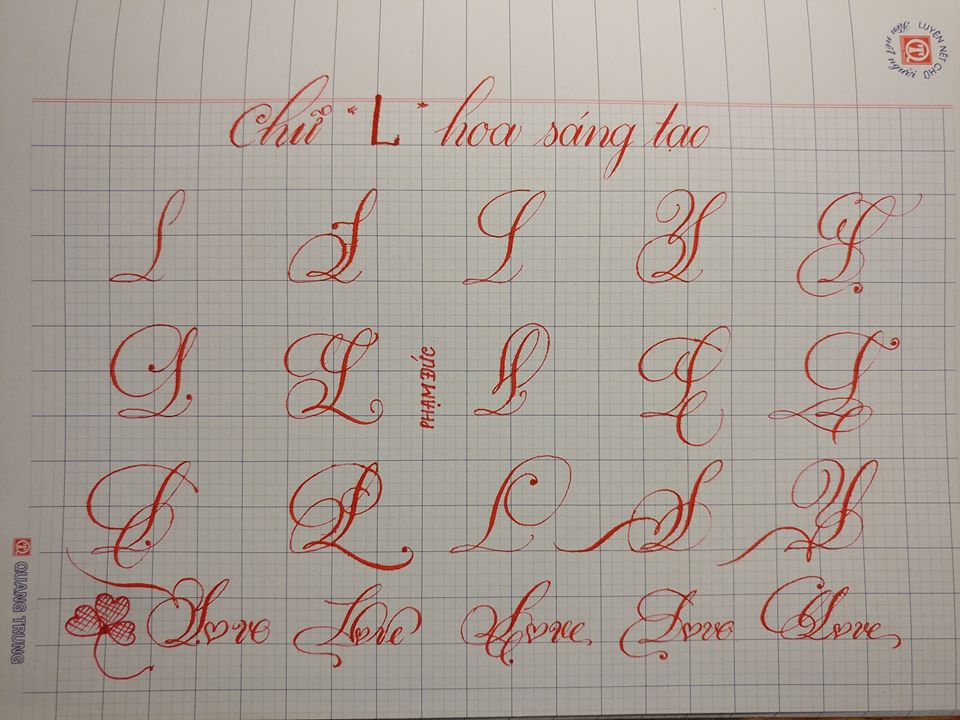 LUYỆN NÉT CHỮ
Rèn nết người
Chữ "L" hoa sáng tạo
L L L L L
L L L L L
PHẠM ĐỨC
L L L L L
Love Love Love Love Love
QUANG TRUNG